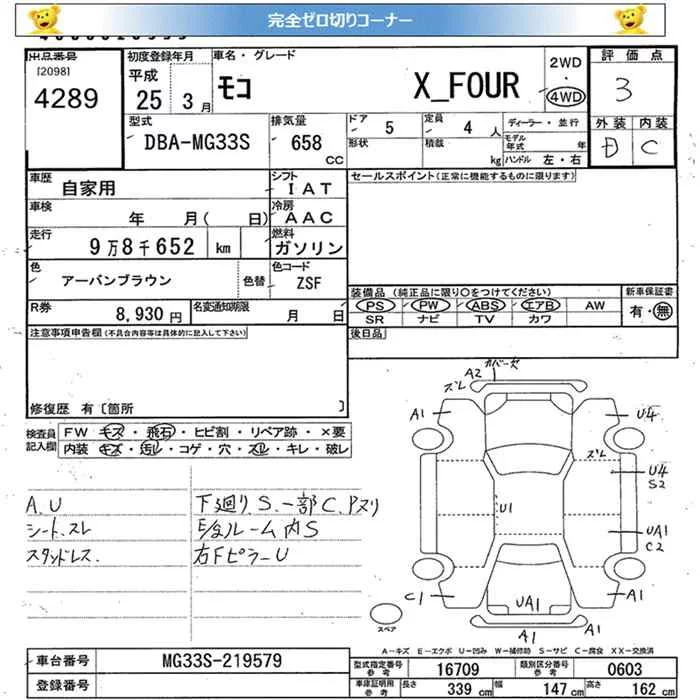 完全ゼロ切りコーナー
出品番号
[2098]
4289
初度登録年月
平成
25 3 月
車名・グレード
モコ X_FOUR
2WD
・
4WD
評価点
3
型式
DBA-MG33S
排気量
658
CC
ドア
5
形状
定員
4 人
積載
kg
ディーラー・並行
モデル年式 年
ハンドル 左・右
外装 内装
D C
車歴
自家用
シフト
IAT
セールスポイント(正常に機能するものに限ります)
車検
年 月( 日)
冷房
AAC
走行
9万8千652 km
燃料
ガソリン
色
アーバンブラウン
色替
色コード
ZSF
装備品(純正品に限り○をつけてください)
新車保証書
PS PW ABS エアB AW
有・無
SR ナビ TV カワ
R券
8,930 円
名変通知期限
月 日
後日品
注意事項申告欄(不具合内容等は具体的に記入して下さい)
修復歴 有〔箇所 〕
検査員記入欄
FW キズ・飛石・ヒビ割・リペア跡・×要
内装 キズ・汚レ・コゲ・穴・スレ・キレ・破レ
A.U
シート.スレ
スタッドレス.
下廻りS.一部C.Pヌリ
E/gルーム内S
右FピラーU
カバー欠
A2
ズレ
A1
U4
ズレ
U4
S2
U1
UA1
C2
C1
UA1
A1
A1
A1
スペア
A-キズ E-エクボ U-凹み W-補修跡 S-サビ C-腐食 XX-交換済
車台番号
MG33S-219579
登録番号
型式指定番号
参考
16709
類別区分番号
参考
0603
車庫証明用
参考
長さ 339 cm
幅 147 cm
高さ 162 cm